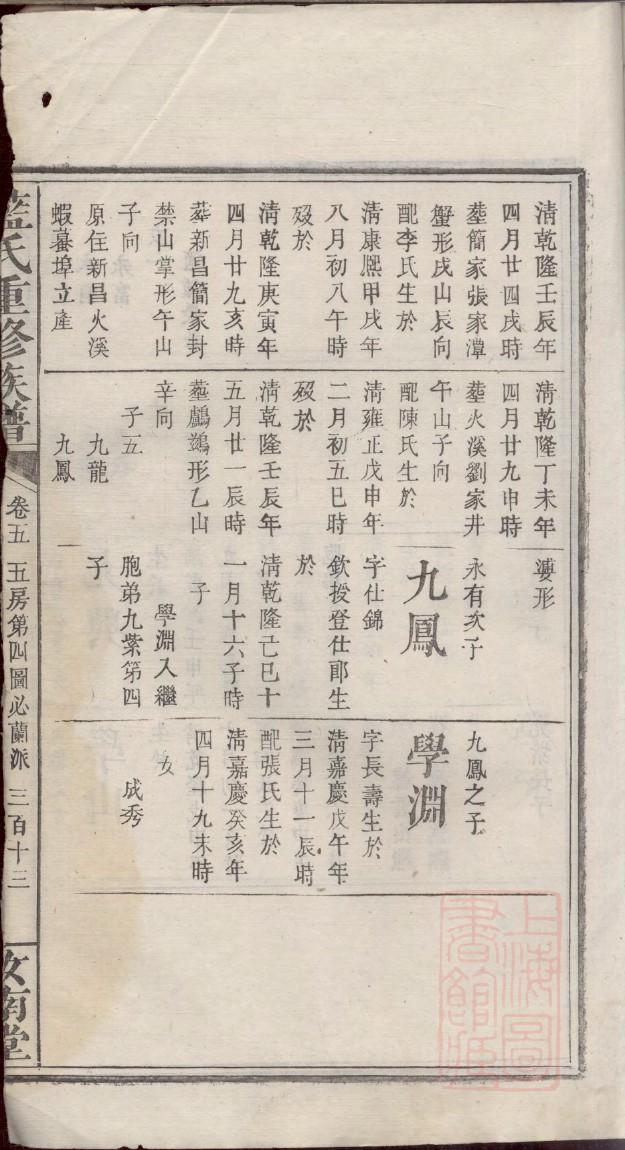 清乾隆壬辰年
四月廿四戌時
塟簡家張家潭
蟹形戌山辰向
配李氏生於
清康熈甲戌年
八月初八午時
殁於
清乾隆庚寅年
四月廿九亥時
塟新昌簡家封
禁山掌形午山
子向
原住新昌火溪
蝦蟇埠立產
清乾隆丁未年
四月廿九申時
塟火溪劉家井
午山子向
配陳氏生於
清雍正戊申年
二月初五巳時
殁於
清乾隆壬辰年
五月廿一辰時
塟鸕鷀形乙山
辛向
子五
九龍
九鳳
一
永有次子
九鳳
字仕錦
欽授登仕郎生
於
清乾隆己巳十
一月十六子時
子
學淵入繼
胞弟九紫第四
子
九鳳之子
學淵
字長壽生於
清嘉慶戊午年
三月十一辰時
配張氏生於
清嘉慶癸亥年
四月十九未時
女
成秀
藍氏重修族譜
卷五
五房第四圖必蘭派
三百十三
汝南堂
上海圖
書館藏